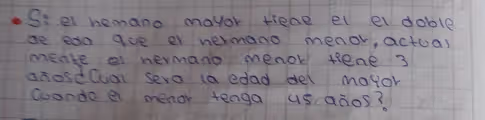 • Si el hemano mayor tiene el el doble
de eda que el hermano menor, actual
mente el hermano menor tiene 3
años ¿Cual sera la edad del mayor
cuando el menor tenga 45 años?